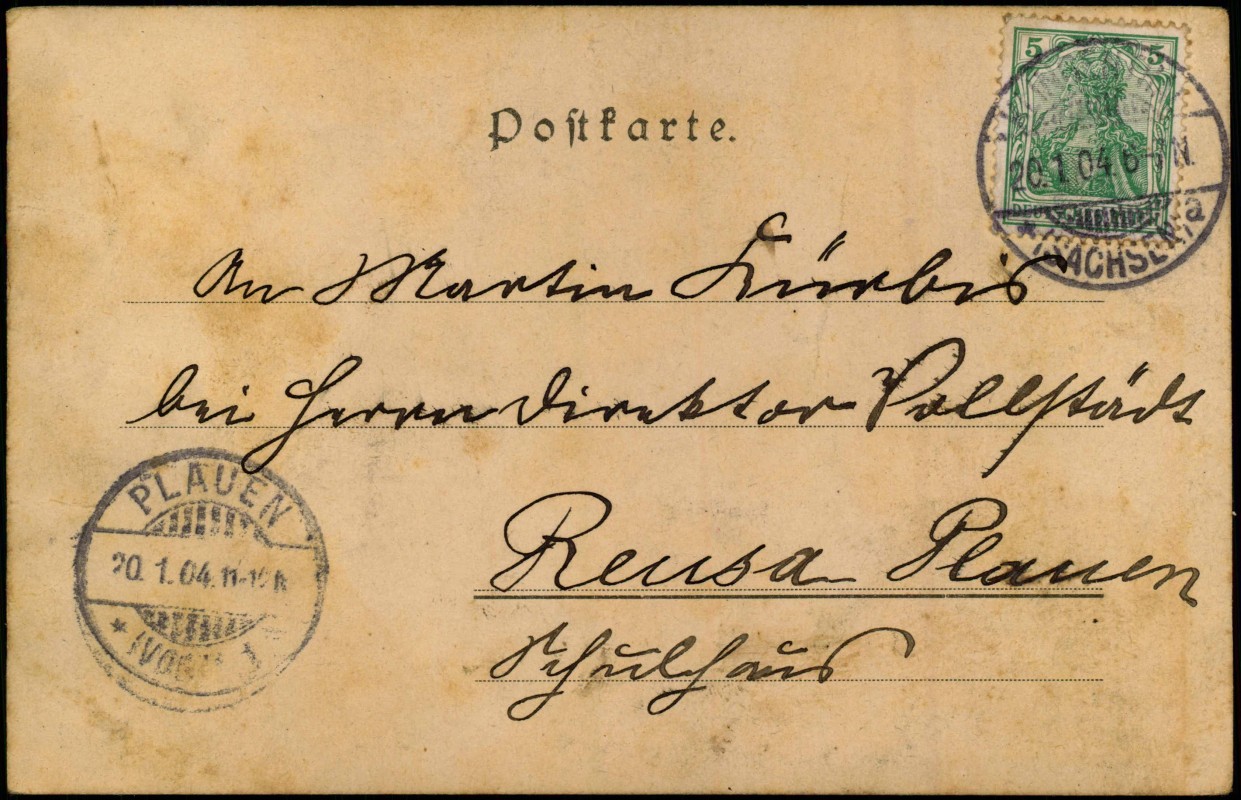 Postkarte.
5 5
20.1.04 6-7 N.
(SACHSEN) a
An Martin Kürbis
bei Herrn Direktor Vollstädt
Reusa Plauen
Schulhaus
PLAUEN
20.1.04. 11-12 N
* (VOGTL.) 1